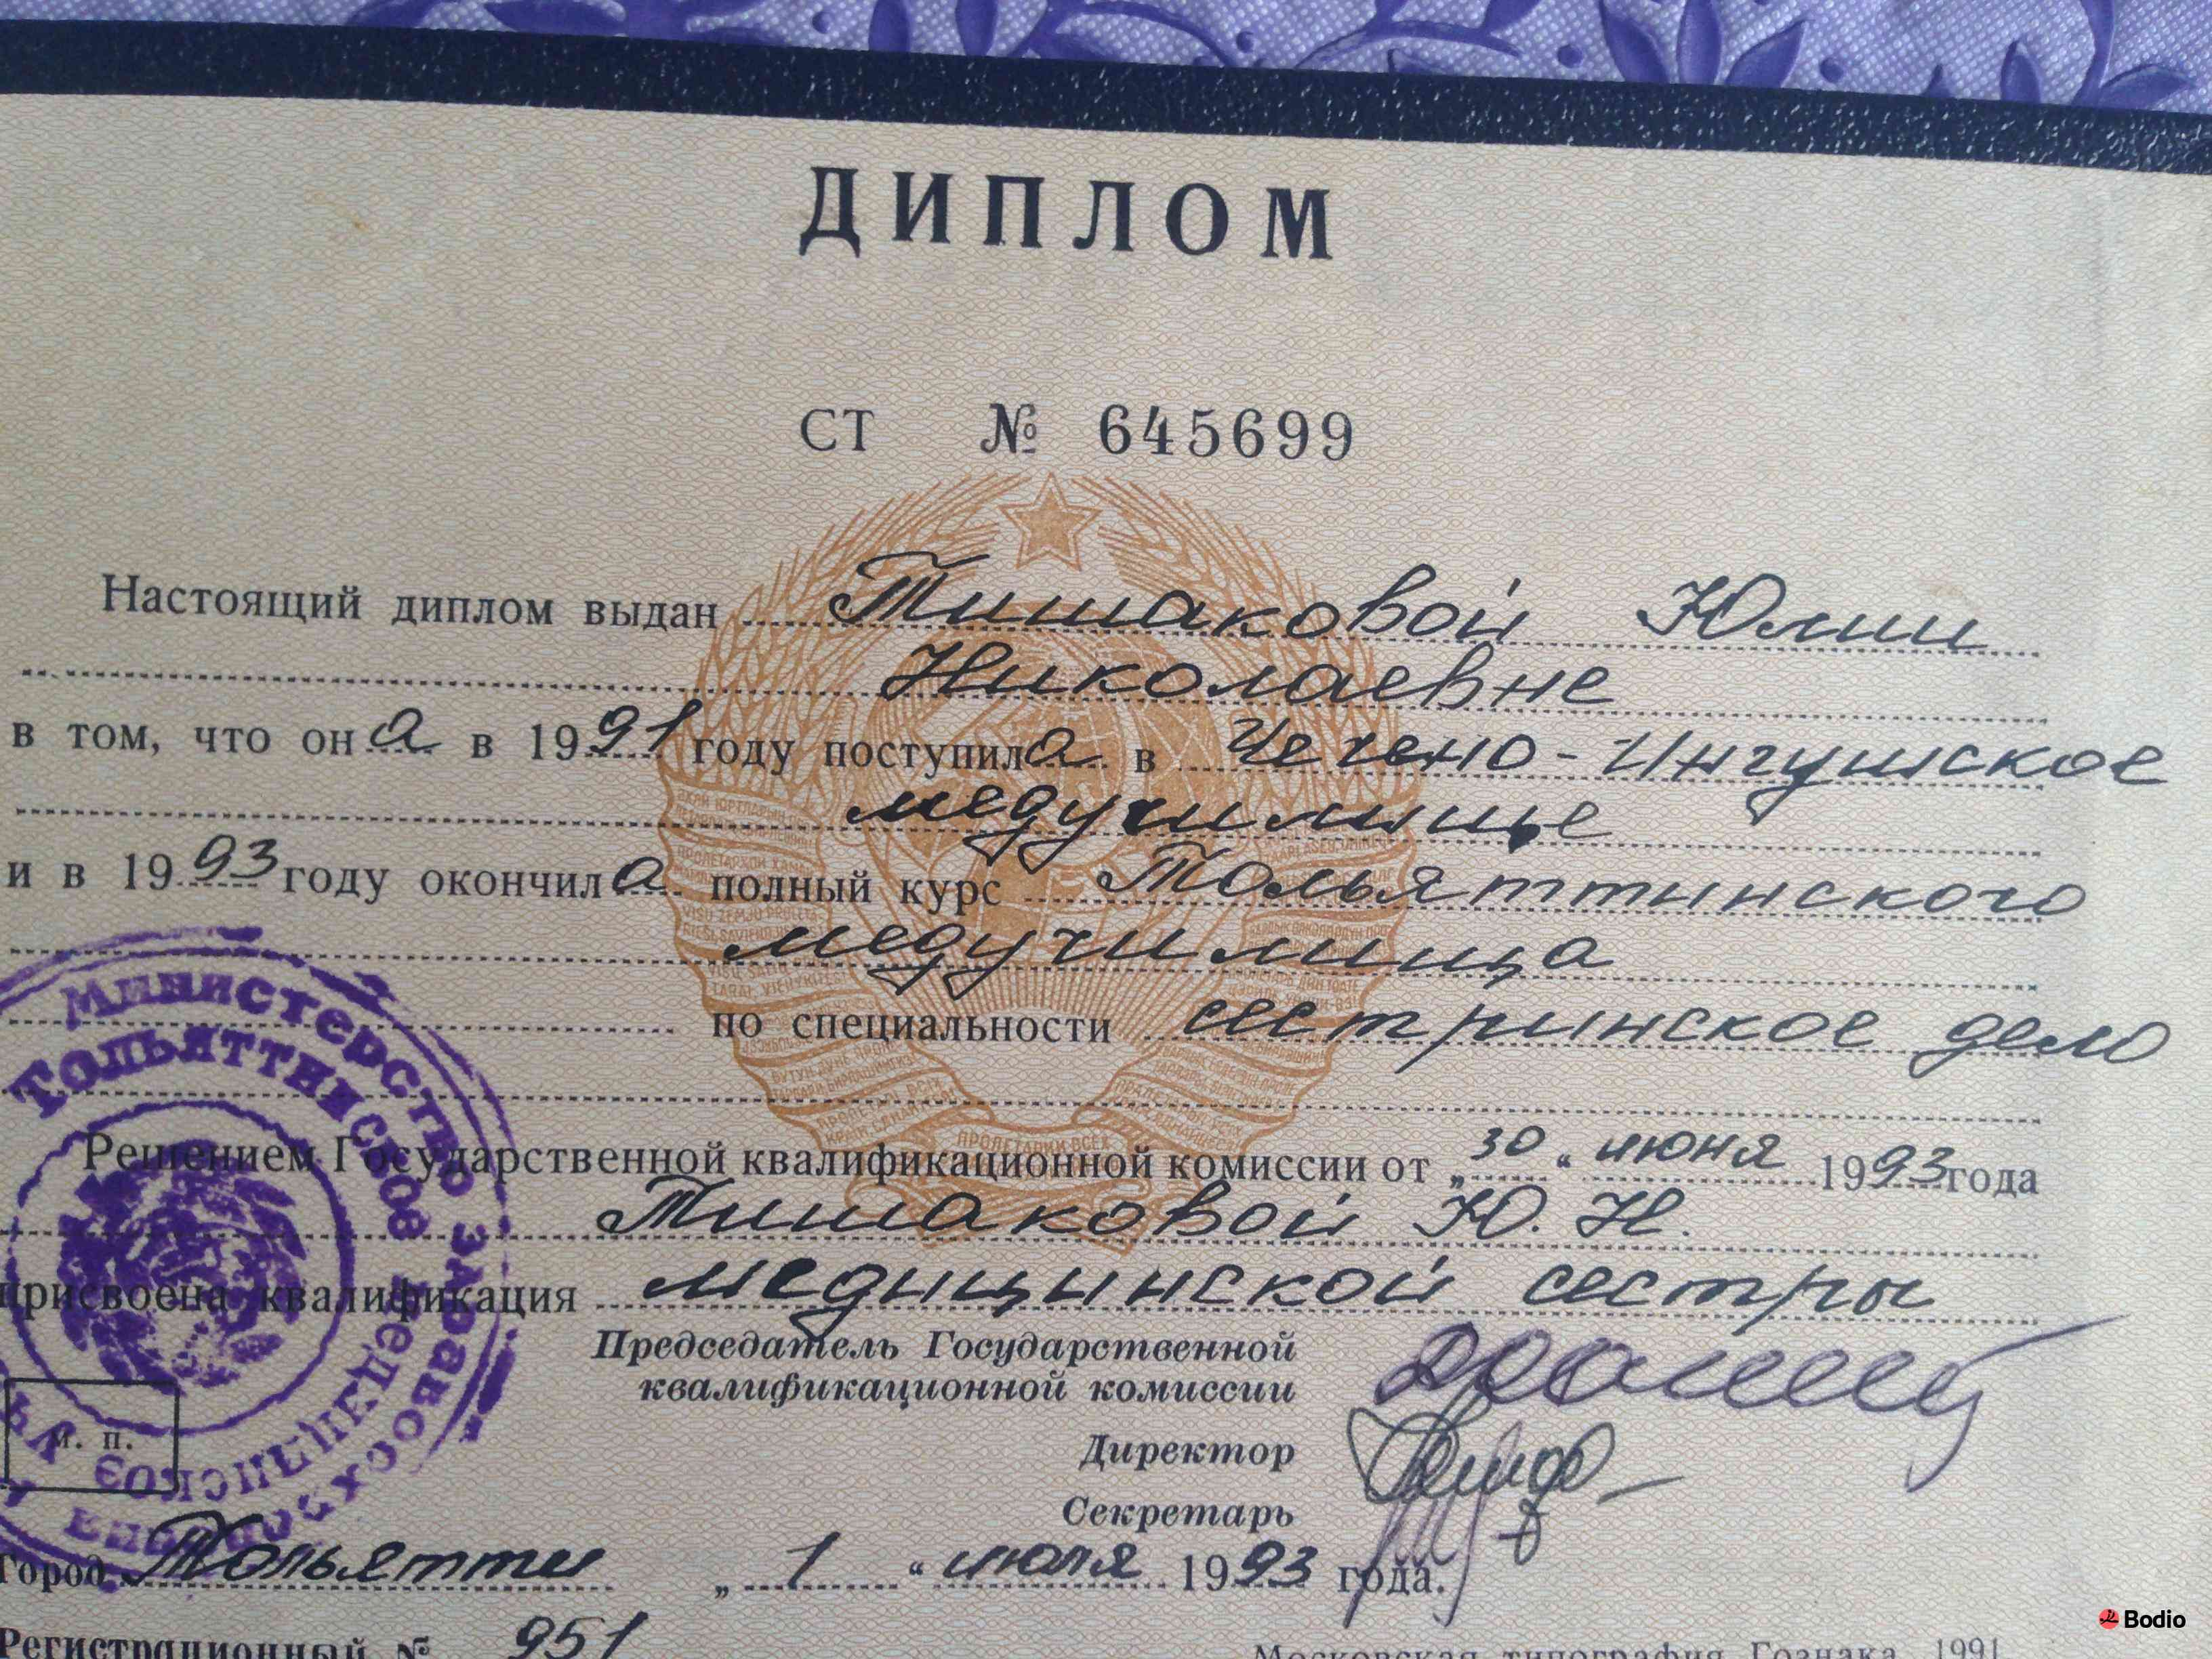 ДИПЛОМ
СТ № 645699
Настоящий диплом выдан Тишаковой Юлии
Николаевне
в том, что она в 1991 году поступила в Чечено-Ингушское
медучилище
и в 1993 году окончила полный курс Тольяттинского
медучилища
по специальности сестринское дело
Решением Государственной квалификационной комиссии от „30“ июня 1993 года
Тишаковой Ю. Н.
присвоена квалификация медицинской сестры
Председатель Государственной
квалификационной комиссии
Директор
Секретарь
М. П.
Город Тольятти „1“ июля 1993 года.
Регистрационный № 951
Московская типография Гознака. 1991
Министерство здравоохранения
Тольяттинское медицинское
ПРОЛЕТАРИИ ВСЕХ
Bodio